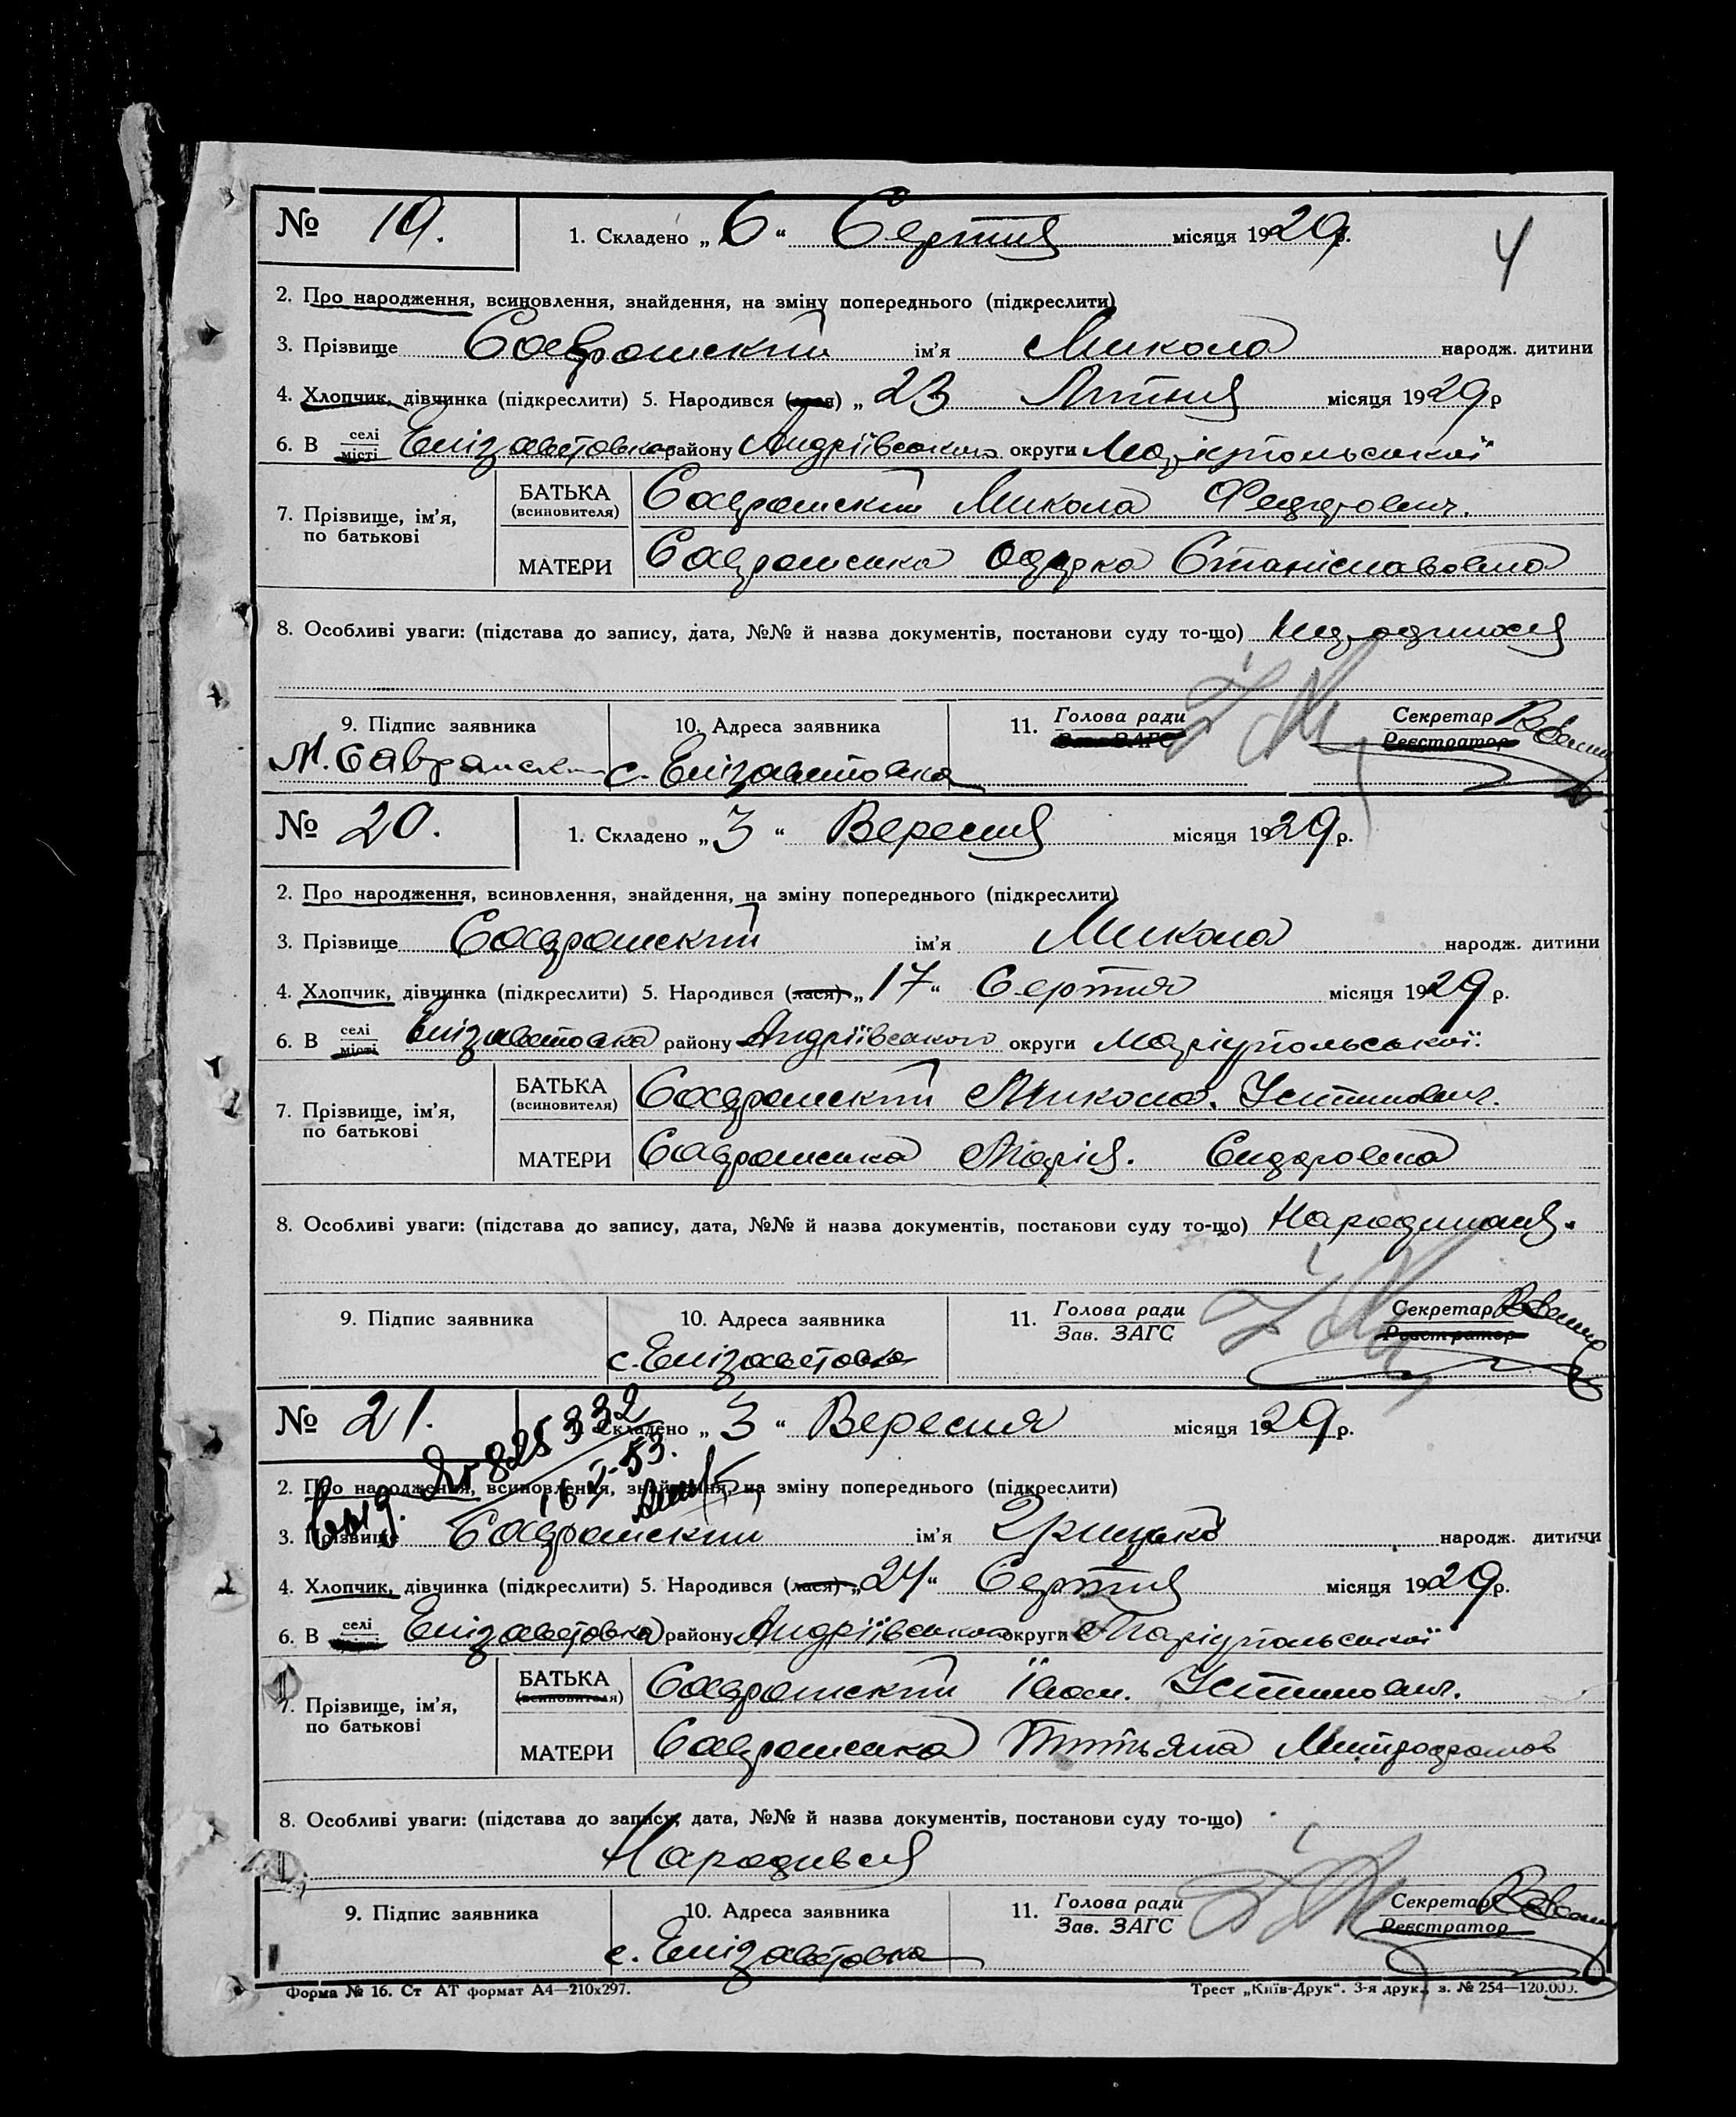 № 19.
1. Складено „ 6 “ Серпня місяця 1929 р.
4
2. Про народження, всиновлення, знайдення, на зміну попереднього (підкреслити)
3. Прізвище Савранський ім'я Микола народж. дитини
4. Хлопчик, дівчинка (підкреслити) 5. Народився (лася) „ 23 Липня місяця 1929 р
6. В селі місті Елізаветовка району Андріївського округи Маріупольської
7. Прізвище, ім'я, по батькові
БАТЬКА (всиновителя) Савранський Микола Федорович.
МАТЕРИ Савранська Одарка Станіславовна
8. Особливі уваги: (підстава до запису, дата, №№ й назва документів, постанови суду то-що)
9. Підпис заявника 10. Адреса заявника 11. Голова ради Зав. ЗАГС Секретар Реєстратор
М. Савранск с. Елізаветовка
№ 20.
1. Складено „ 3 “ Вересня місяця 1929 р.
2. Про народження, всиновлення, знайдення, на зміну попереднього (підкреслити)
3. Прізвище Савранський ім'я Микола народж. дитини
4. Хлопчик, дівчинка (підкреслити) 5. Народився (лася) „ 17 “ Серпня місяця 1929 р.
6. В селі місті Елізаветовка району Андріївського округи Маріупольської
7. Прізвище, ім'я, по батькові
БАТЬКА (всиновителя) Савранський Микола. Устинович.
МАТЕРИ Савранська Марія. Сидоровна
8. Особливі уваги: (підстава до запису, дата, №№ й назва документів, постанови суду то-що)
9. Підпис заявника 10. Адреса заявника 11. Голова ради Зав. ЗАГС Секретар Реєстратор
с. Елізаветовка
№ 21.
1. Складено „ 3 “ Вересня місяця 1929 р.
2. Про народження, всиновлення, знайдення, на зміну попереднього (підкреслити)
3. Прізвище Савранський ім'я Грицько народж. дитини
4. Хлопчик, дівчинка (підкреслити) 5. Народився (лася) „ 24 “ Серпня місяця 1929 р.
6. В селі Елізаветовка району Андріївського округи Маріупольської
7. Прізвище, ім'я, по батькові
БАТЬКА (всиновителя) Савранський Іван. Устинович.
МАТЕРИ Савранська Тетьяна
8. Особливі уваги: (підстава до запису, дата, №№ й назва документів, постанови суду то-що)
Народився
9. Підпис заявника 10. Адреса заявника 11. Голова ради Зав. ЗАГС Секретар Реєстратор
с. Елізаветовка
Форма № 16. Ст АТ формат А4—210х297.
Трест „Київ-Друк“. 3-я друк., з. № 254—120.000.